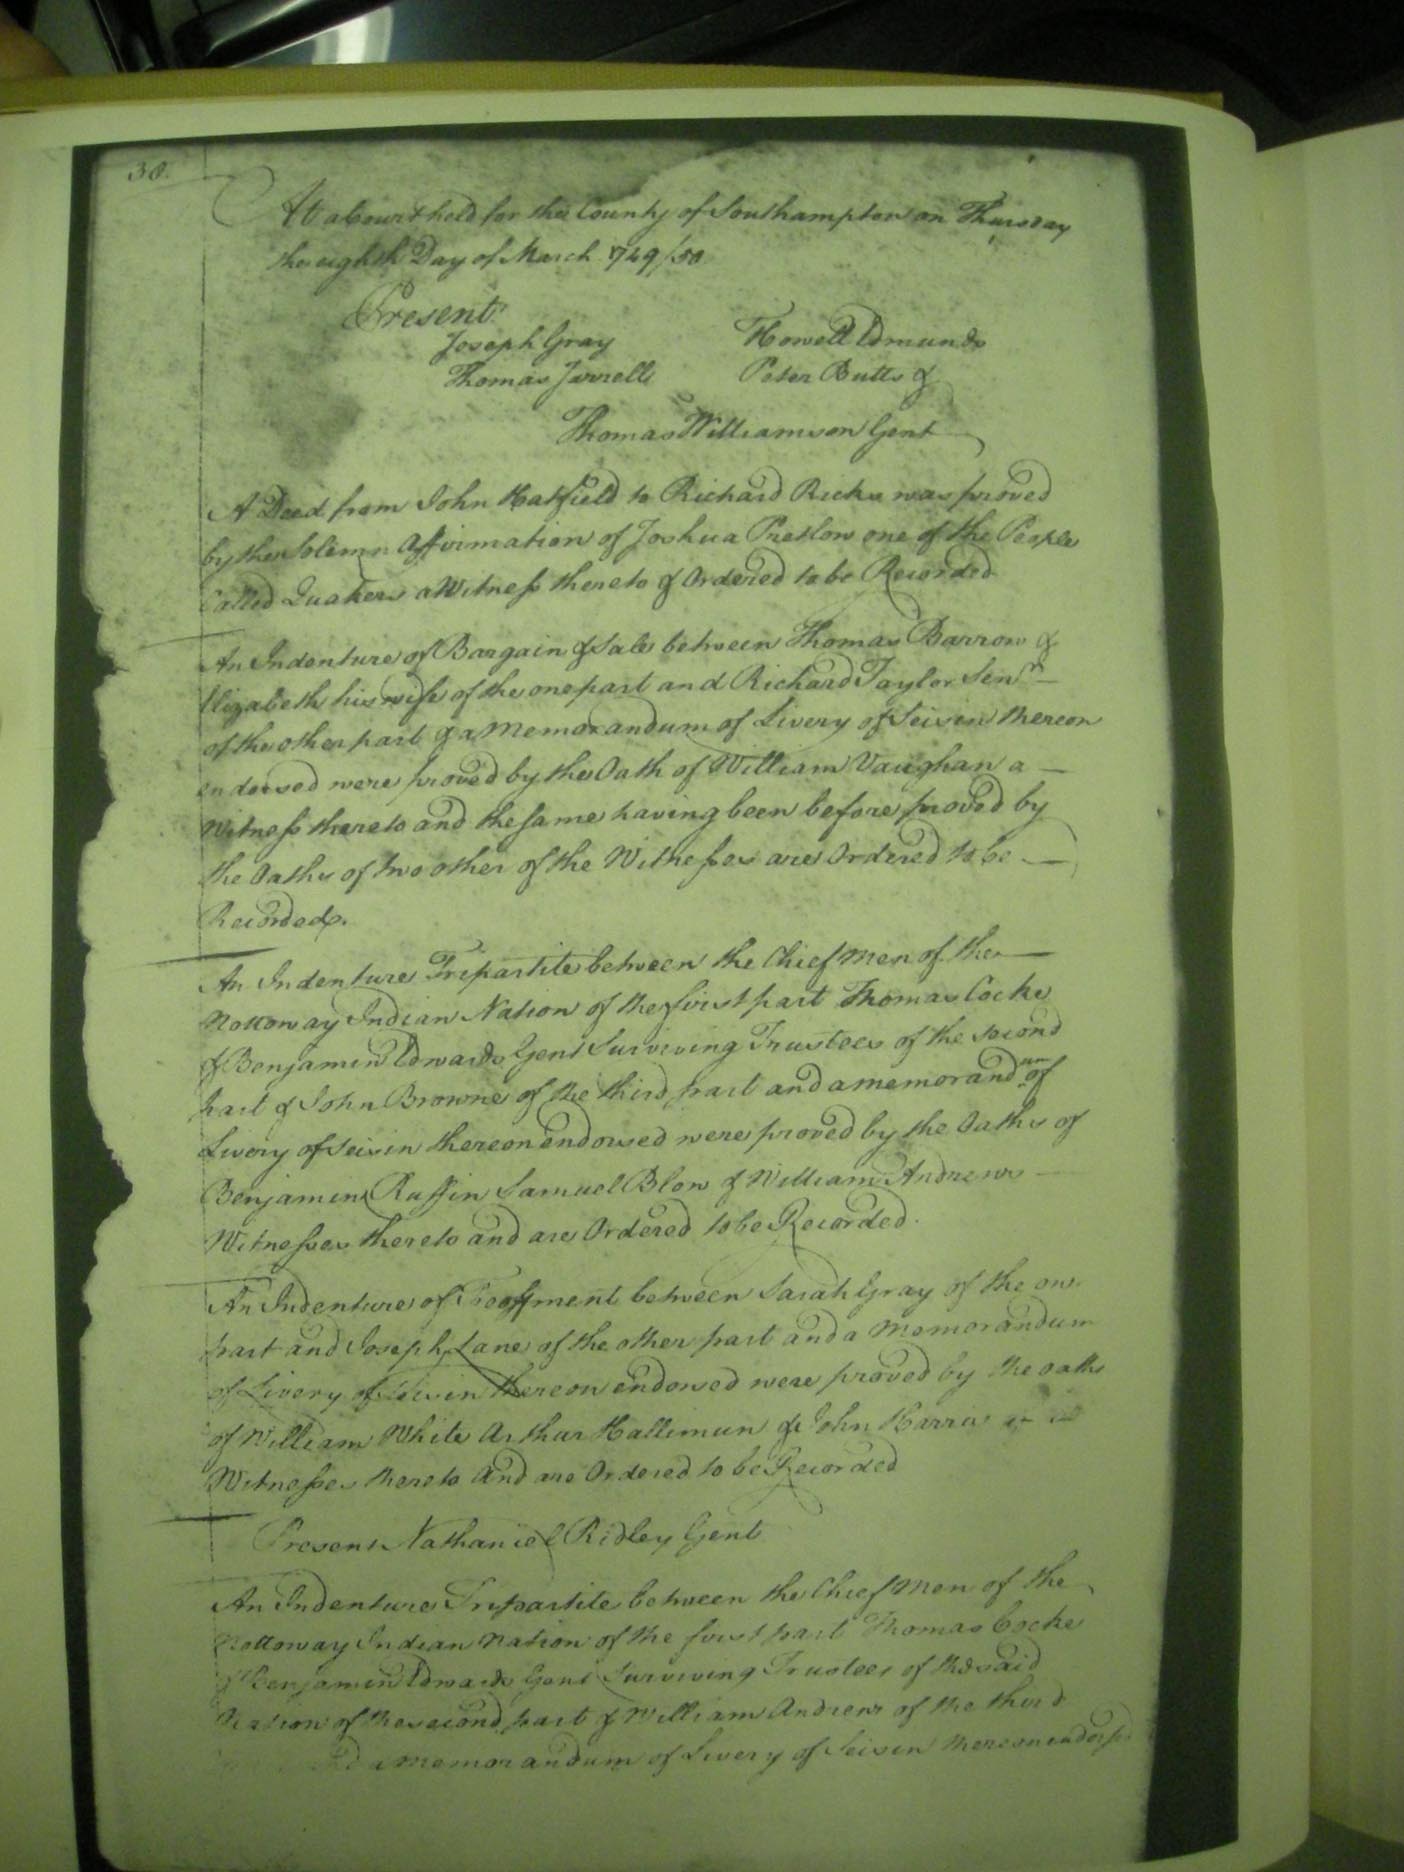 38.
At a Court held for the County of Southampton on Thursday
the eighth Day of March 1749/50
Present
Joseph Gray Howell Edmunds
Thomas Jarrell Peter Butts &
Thomas Williamson Gent
A Deed from John Hatfield to Richard Ricks was proved
by the Solemn Affirmation of Joshua Pretlow one of the People
Called Quakers a Witness thereto & Ordered to be Recorded
An Indenture of Bargain & Sale between Thomas Barrow &
Elizabeth his wife of the one part and Richard Taylor Senr
of the other part & a Memorandum of Livery of Seisin thereon
endorsed were proved by the Oath of William Vaughan a
Witness thereto and the same having been before proved by
the Oaths of two other of the Witnesses are Ordered to be
Recorded.
An Indenture Tripartite between the Chief Men of the
Nottoway Indian Nation of the first part Thomas Cocke
& Benjamin Edwards Gent Surviving Trustees of the second
part & John Browne of the third part and a memorandum of
Livery of Seisin thereon endorsed were proved by the Oaths of
Benjamin Ruffin Samuel Blow & William Andrews
Witnesses thereto and are Ordered to be Recorded.
An Indenture of Feoffment between Sarah Gray of the one
part and Joseph Lane of the other part and a Memorandum
of Livery of Seisin thereon endorsed were proved by the Oaths
of William White Arthur Hallimun & John Harris
Witnesses thereto and are Ordered to be Recorded
Present Nathaniel Ridley Gent
An Indenture Tripartite between the Chief Men of the
Nottoway Indian Nation of the first part Thomas Cocke
& Benjamin Edwards Gent Surviving Trustees of the said
Nation of the second part & William Andrews of the third
a Memorandum of Livery of Seisin thereon endorsed